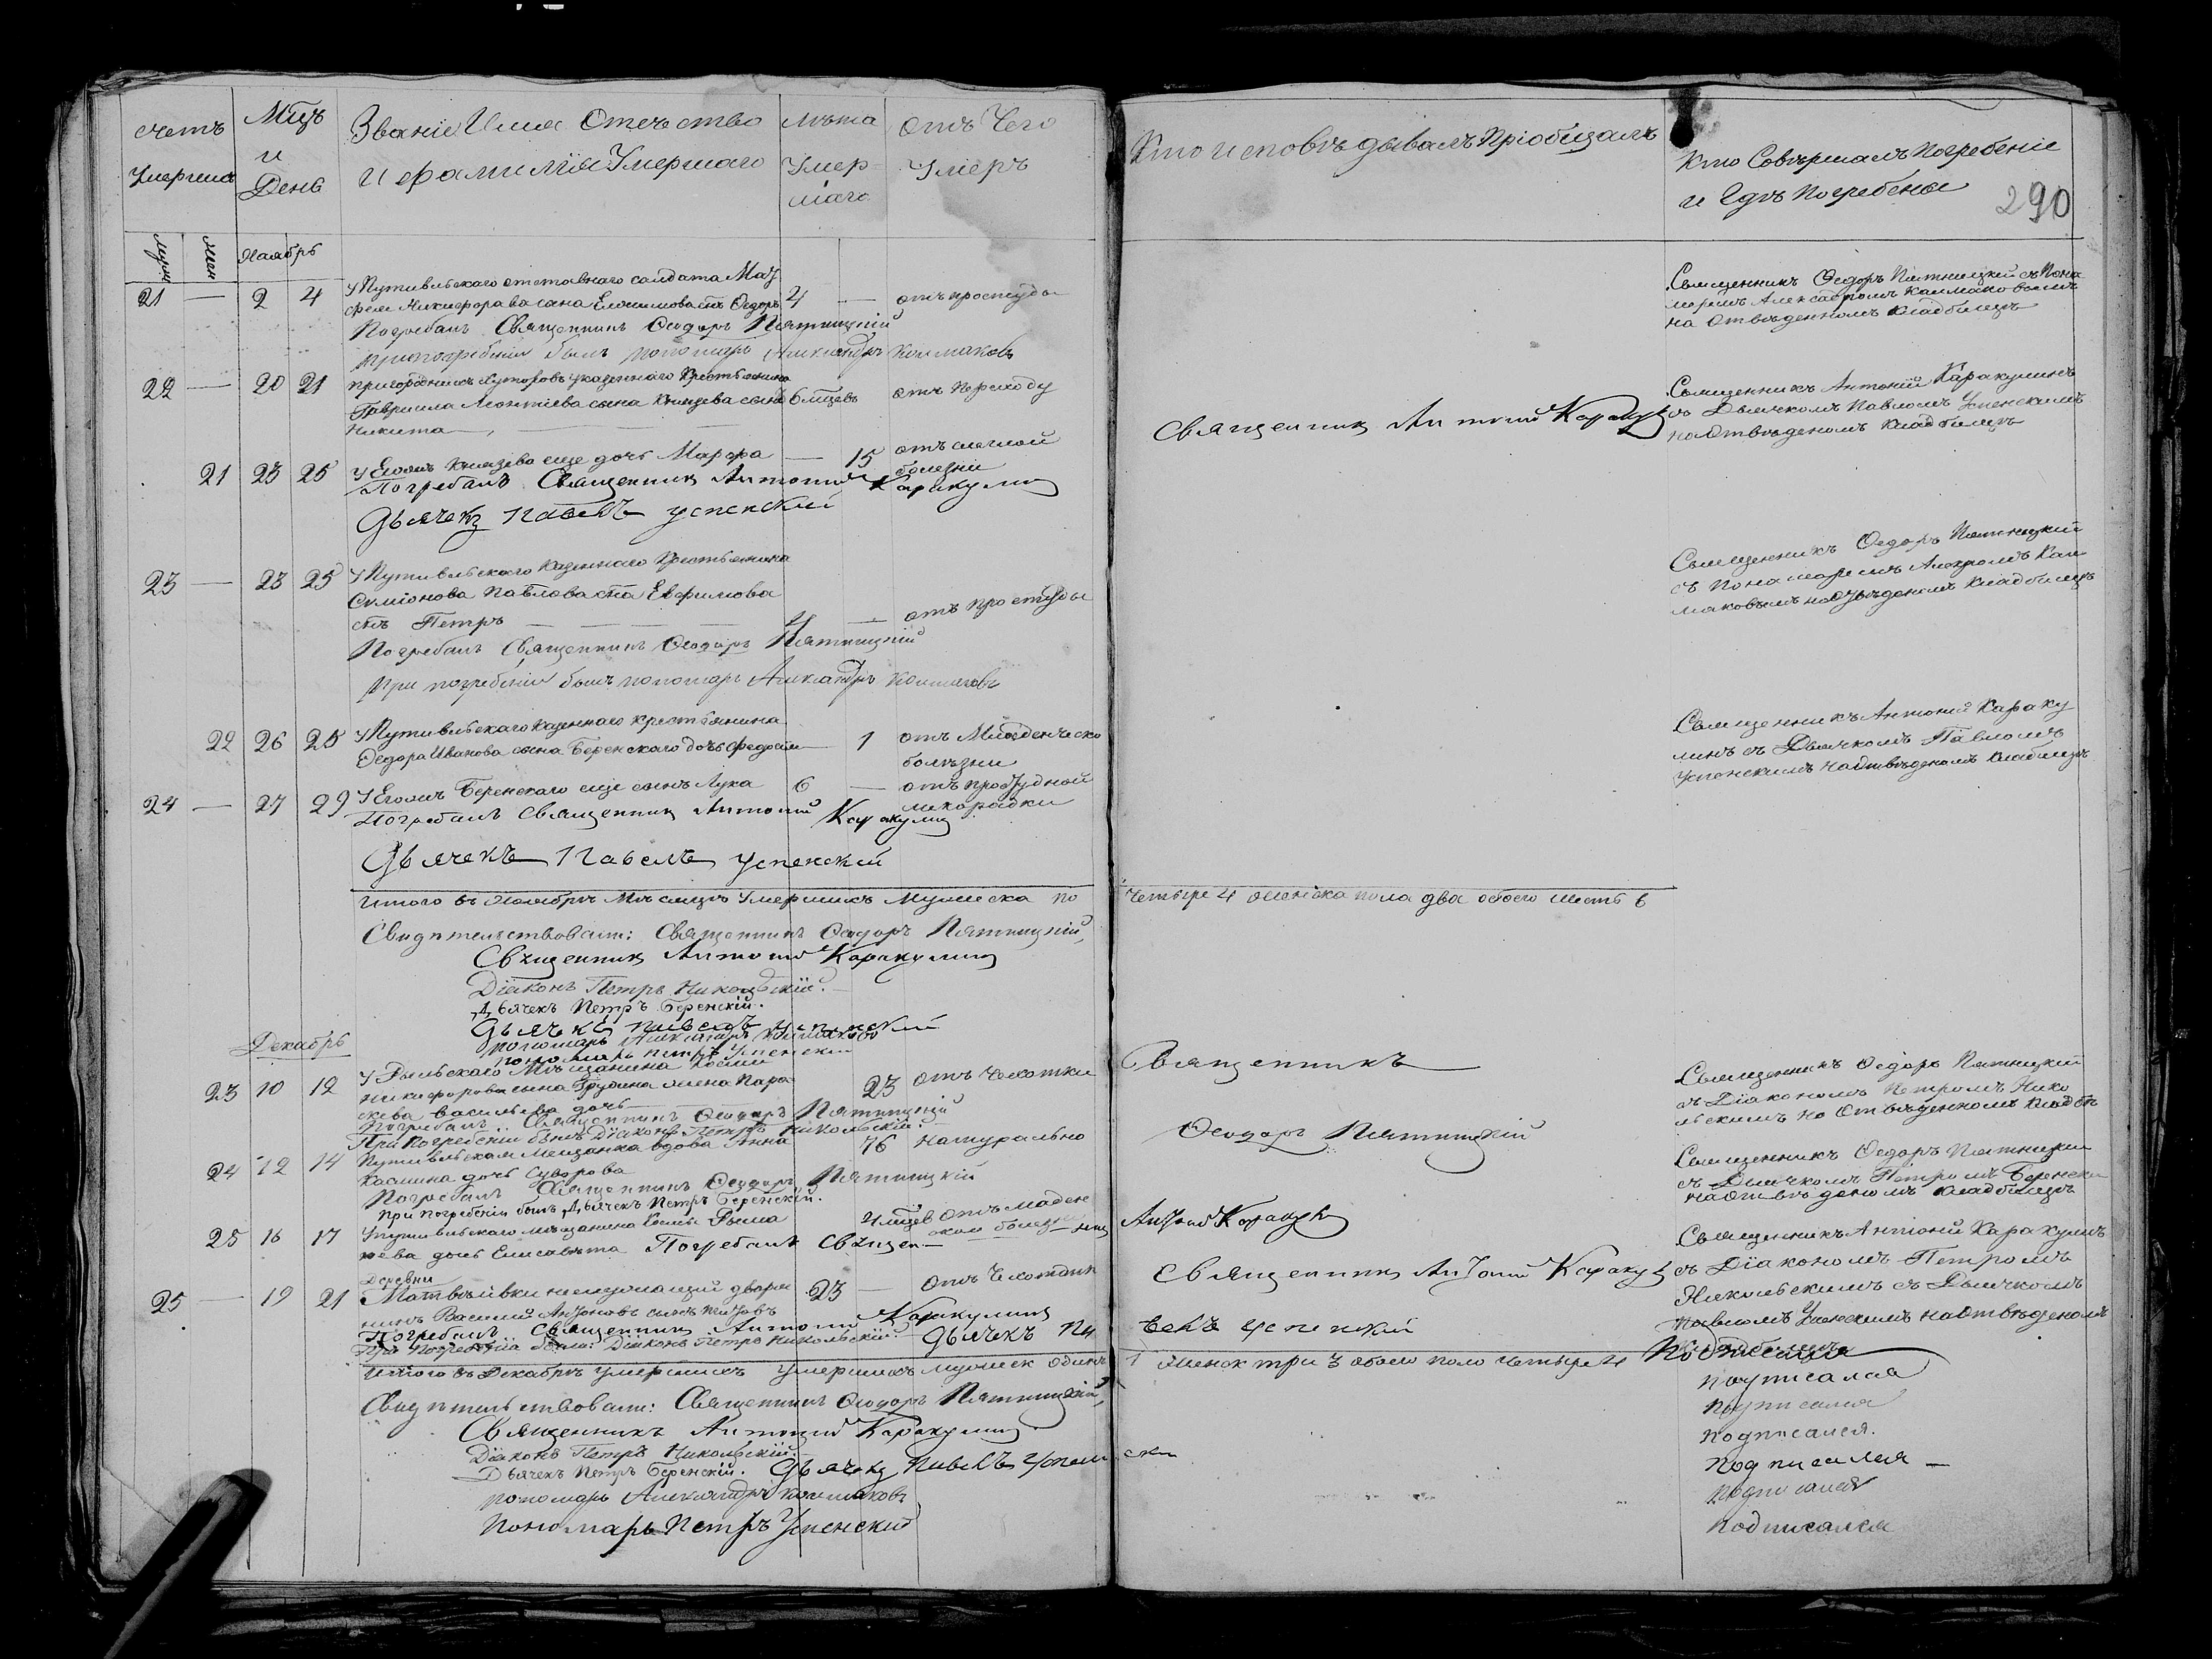 Счетъ
Умершихъ
Мцъ
и
День
Званіе Имя Отечество
и фамилія Умершаго
лѣта
Умер
шаго
отъ Чего
Умеръ
Кто исповѣдывалъ и Пріобщалъ
Кто Совершалъ Погребеніе
и Гдѣ Погребены
290
муж
жен
Ноябрь
21 — 2 4
У Путивльскаго отставнаго солдата
Никифорова сына сынъ Ѳедоръ 4 — отъ простуды
Погребалъ Священникъ Ѳеодоръ Пятницкій
При погребеніи былъ пономарь Александръ Колмаковъ
Священникъ Ѳедоръ Пятницкій съ Поно
маремъ Александромъ Колмаковымъ
на Отведенномъ кладбищѣ
22 — 20 21 Пригородныхъ Хуторовъ казеннаго Крестьянина
Гавріила Леонтіева сына Князева сынъ 6 мцевъ отъ
Никита —
Священникъ Антоній Каракулинъ
Священникъ Антоній Каракулинъ
съ Дьячкомъ Павломъ Успенскимъ
на Отведеномъ кладбищѣ
21 23 25 У Егожъ Князева еще дочь Марфа — 15 отъ
болезни
Погребалъ Священникъ Антоній Каракулинъ
Дьячекъ Павелъ Успенскій
23 — 23 25 У Путивльскаго Казеннаго Крестьянина
Симіонова Павлова Евфимова
снъ Петръ — — — 4 — отъ простуды
Погребалъ Священникъ Ѳеодоръ Пятницкій
При погребеніи былъ пономарь Александръ Колмаковъ
Священникъ Ѳедоръ Пятницкій
съ Пономаремъ Кол
маковымъ на Отведеномъ кладбищѣ
22 26 28 У Путивльскаго казеннаго крестьянина
Ѳедора Иванова сына Беренскаго дочь — 1 отъ Младенческо
болѣзни
Священникъ Антоній Караку
линъ съ Дьячкомъ Павломъ
Успенскимъ на Отведеномъ кладбищѣ
24 — 27 29 У Егожъ Беренскаго еще сынъ Лука 6 — отъ простудной
лихорадки
Погребалъ Священникъ Антоній Каракулинъ
Дьячекъ Павелъ Успенскій
Итого въ Ноябрѣ Мѣсяцѣ Умершихъ Мужеска по
Четыре 4 женска пола два обоего шесть 6
Свидѣтельствовали: Священникъ Ѳеодоръ Пятницкій,
Священникъ Антоній Каракулинъ
Діаконъ Петръ Никольскій.
Дьячекъ Петръ Беренскій.
Дьячекъ Павелъ Успенскій
пономарь Александръ Колмаковъ
пономарь Петръ Успенскій
Декабрь
23 10 12 У Рыльскаго Мѣщанина
Никифорова сына жена Пара
скева Васильева дочь 23 отъ Чахотки
Погребалъ Священникъ Ѳеодоръ Пятницкій
При погребеніи былъ Діаконъ Петръ Никольскій.
Священникъ
Ѳеодоръ Пятницкій
Священникъ Ѳедоръ Пятницкій
съ Діакономъ Петромъ Нико
льскимъ на Отведенномъ кладби
24 12 14 Путивльская Мещанка вдова Анна 76 натурально
дочь Суворова
Погребалъ Священникъ Ѳеодоръ Пятницкій
При погребеніи былъ Дьячекъ Петръ Беренскій.
Священникъ Ѳедоръ Пятницкій
съ Дьячкомъ Петромъ Беренски
на Отведеномъ кладбищѣ
25 16 17 У Путивльскаго мѣщанина
дочь Елисавета Погребалъ Священ— никъ Антоній Каракулинъ
отъ младен
ской болезни
Священникъ Антоній Каракулинъ
съ Діакономъ Петромъ
Никольскимъ съ Дьячкомъ
Павломъ Успенскимъ на Отведеномъ
кладбищѣ
25 — 19 21 Деревни
Матвѣевки дворя
нинъ Василій сынъ 23 — отъ Чахотки
Священникъ Антоній Каракулинъ
Погребалъ Священникъ Антоній Каракулинъ
При Погребеніи были: Діаконъ Петръ Никольскій. Дьячекъ Па
велъ Успенскій
Итого въ Декабрѣ Умершихъ Умершихъ мужеск одинъ
1 женск три 3 обоего пола четыре 4
Свидѣтельствовали: Священникъ Ѳеодоръ Пятницкій,
Священникъ Антоній Каракулинъ
Діаконъ Петръ Никольскій.
Дьячекъ Петръ Беренскій. Дьячекъ Павелъ Успен ски
пономарь Александръ Колмаковъ
Пономарь Петръ Успенскій
Подписался
подписался
подписался
подписался.
подписался —
подписался
подписался